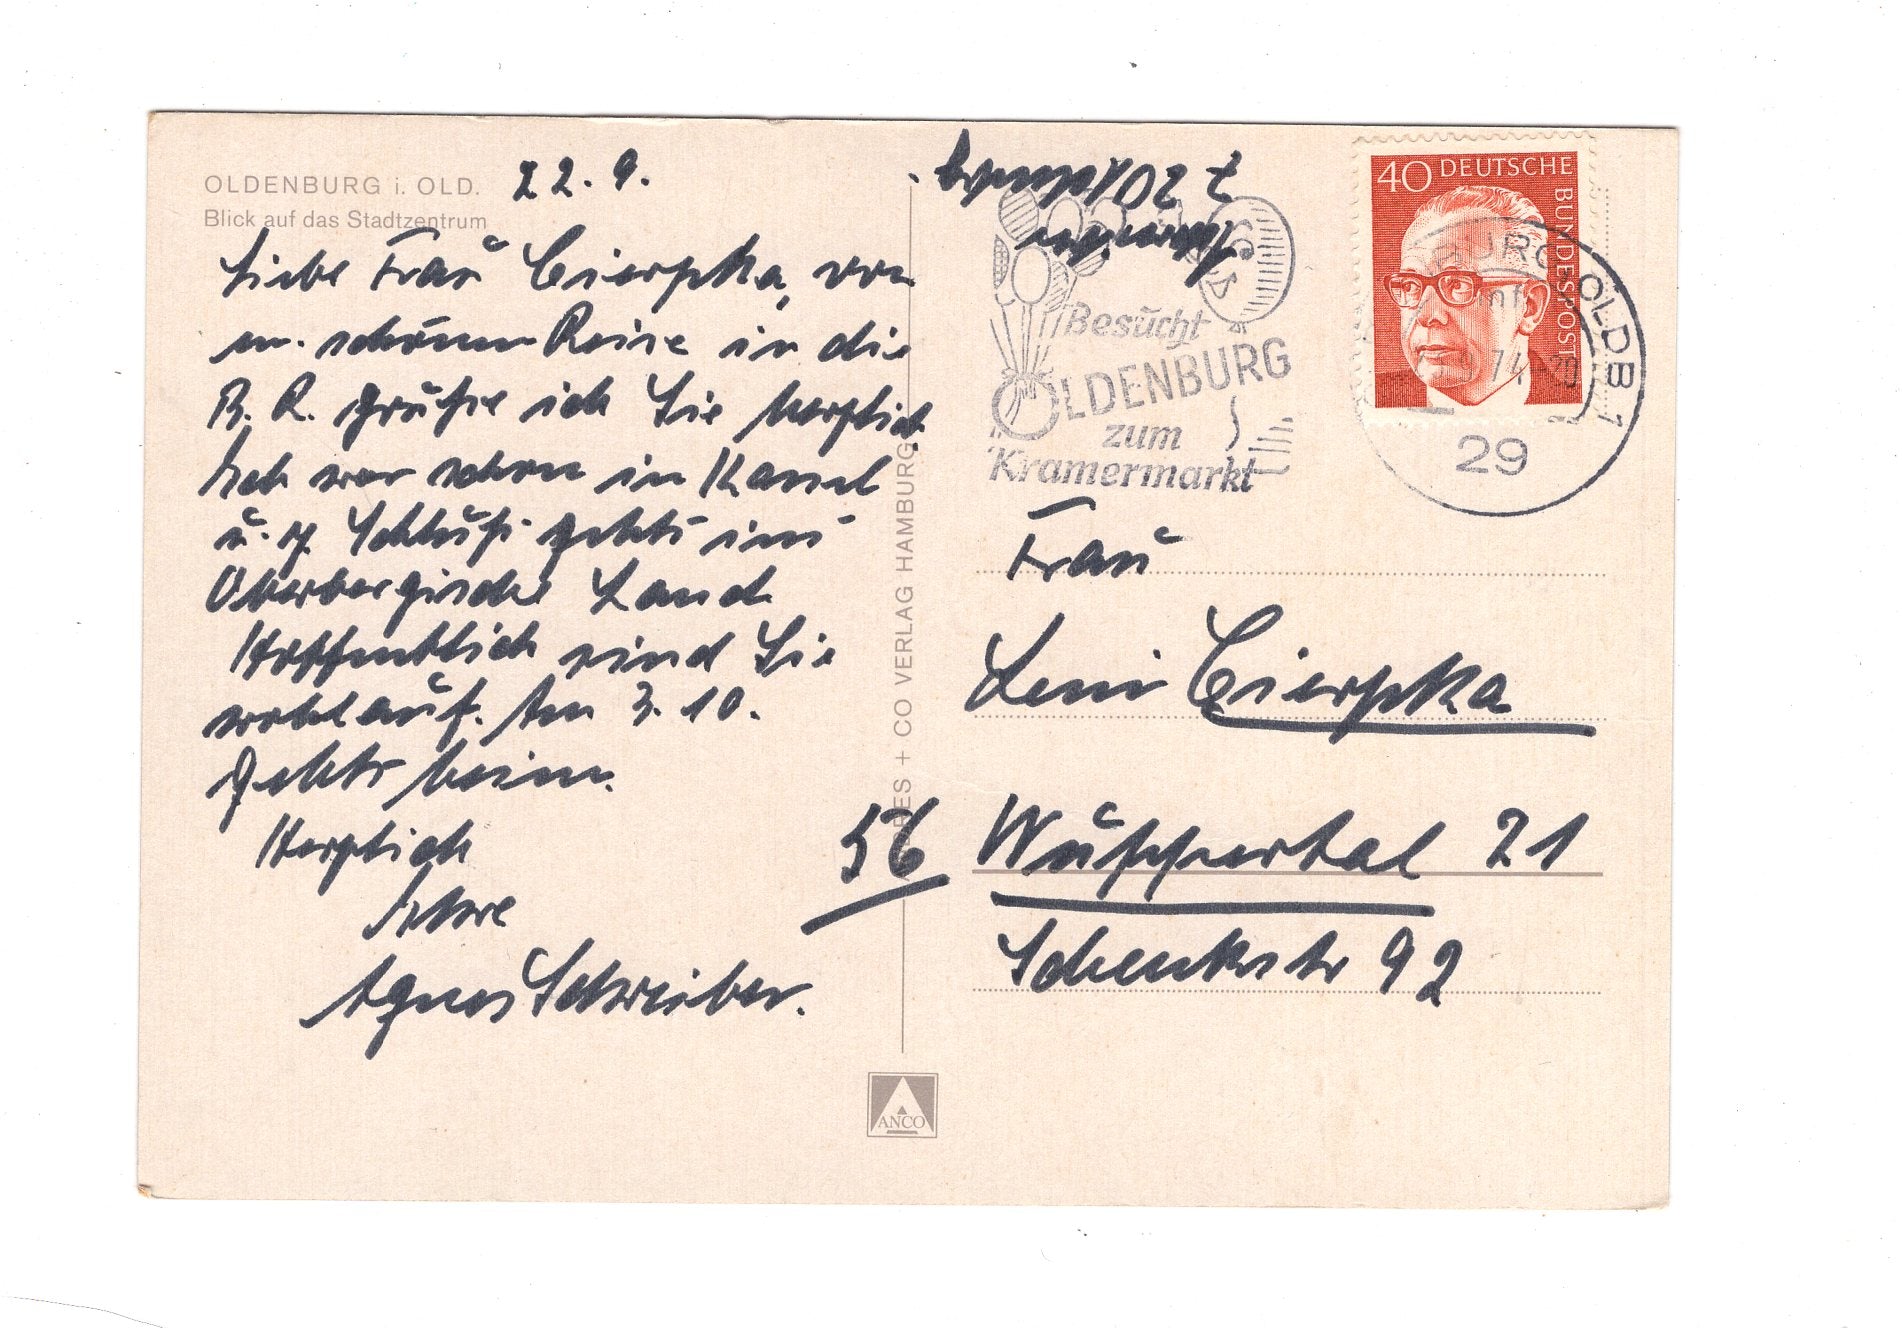 OLDENBURG i. OLD.
Blick auf das Stadtzentrum
22. 9.
Liebe Frau Cierpka, von
m. schönen Reise in die
B. R. grüße ich Sie herzlich
Ich war schon in Kassel
u. z. Schluß gehts ins
Oberbergische Land
Hoffentlich sind Sie
wohlauf. Am 3. 10.
gehts heim.
Herzlich
Ihre
Agnes Schreiber.
+ CO VERLAG HAMBURG
ANCO
Besucht
OLDENBURG
zum
Kramermarkt
40 DEUTSCHE
BUNDESPOST
BURG OLDB 1
74
29
Frau
Leni Cierpka
56 Wuppertal 21
Schenkstr 92